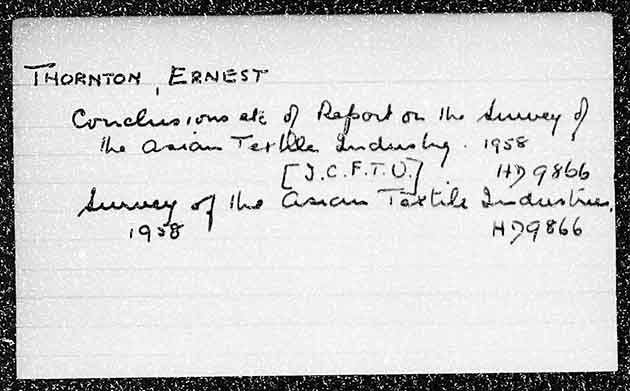 THORNTON, ERNEST
Conclusions etc of Report on the Survey of
the Asian Textile Industry. 1958
[I.C.F.T.U.] HD9866
Survey of the Asian Textile Industries.
1958 HD9866